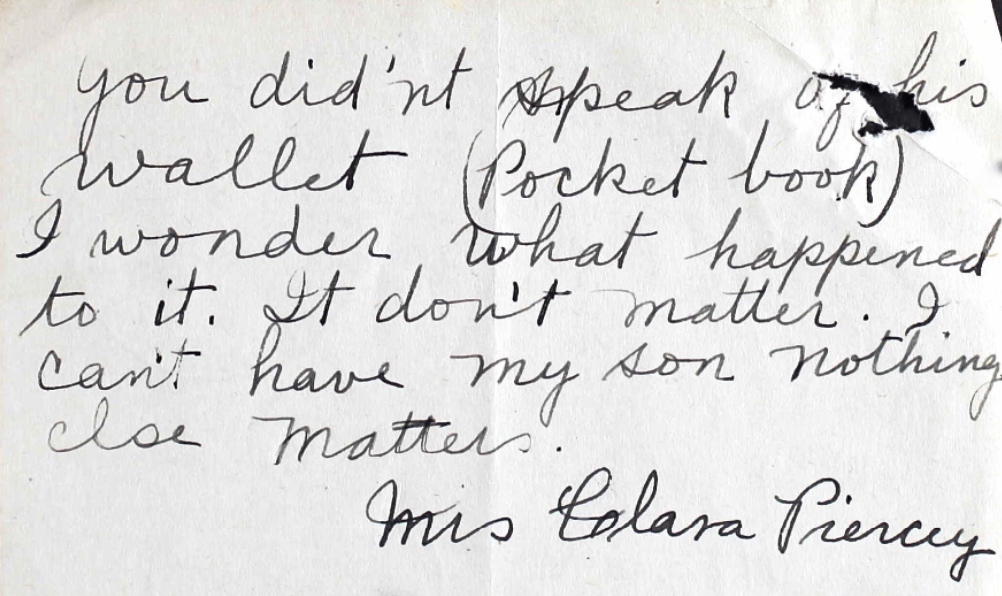 you did'nt speak of his
wallet (Pocket book)
I wonder what happened
to it. It don't matter. I
can't have my son nothing
else matters.
Mrs Clara Piercey